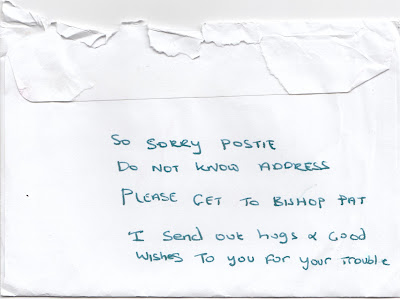 So SORRY POSTIE
DO NOT KNOW ADDRESS
PLEASE GET TO BISHOP PAT
I Send out hugs & Good
WISHES TO YOU FOR YOUR TROUBLE